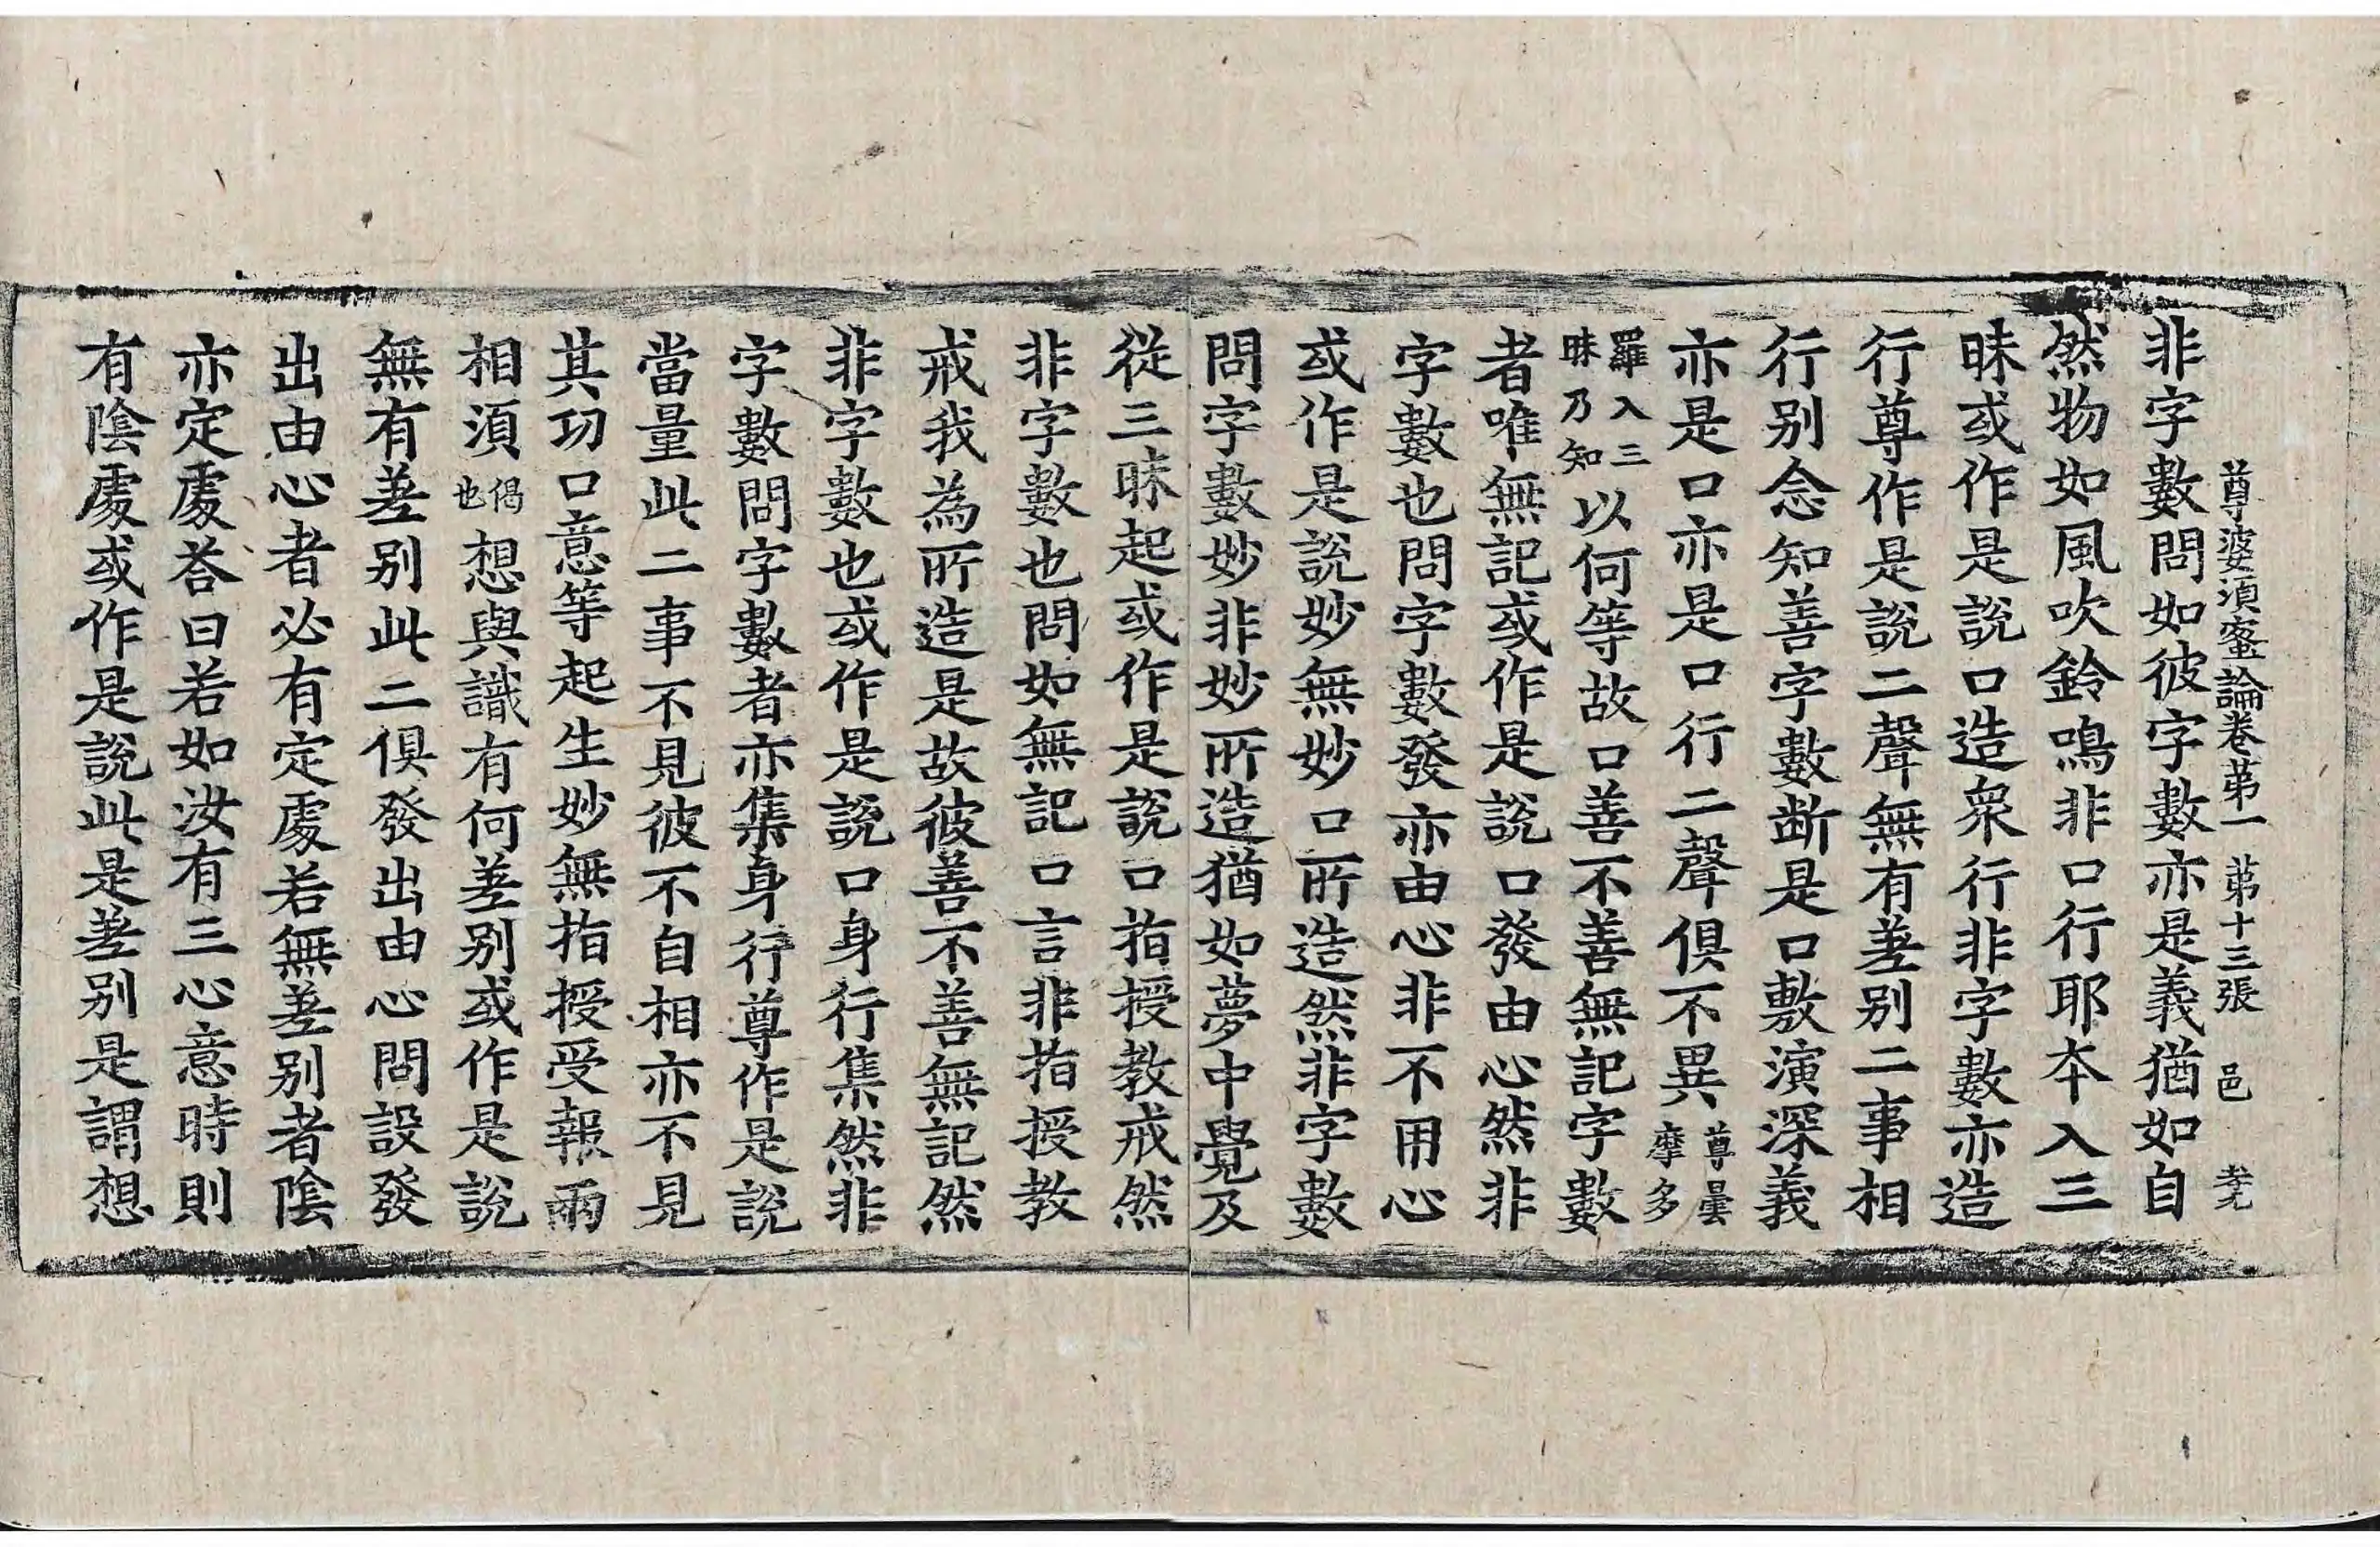 尊婆湏蜜論卷苐一　苐十三張　邑　孝元
非字數問如彼字數亦是義猶如自
然物如風吹鈴鳴非口行耶夲入三
昧或作是說口造衆行非字數亦造
行尊作是說二聲無有差别二事相
行别念知善字數断是口敷演深義
亦是口亦是口行二聲俱不異尊曇摩多
羅入三昧乃知以何等故口善不善無記字數
者唯無記或作是說口發由心然非
字數也問字數發亦由心非不用心
或作是說妙無妙口所造然非字數
問字數妙非妙所造猶如夢中覺及
從三昧起或作是說口指授教戒然
非字數也問如無記口言非指授教
戒我為所造是故彼善不善無記然
非字數也或作是說口身行集然非
字數問字數者亦集身行尊作是說
當量此二事不見彼不自相亦不見
其功口意等起生妙無指授受報兩
相湏偈也想與識有何差别或作是說
無有差别此二俱發出由心問設發
出由心者必有定處若無差别者陰
亦定處荅曰若如汝有三心意時則
有陰處或作是說此是差别是謂想